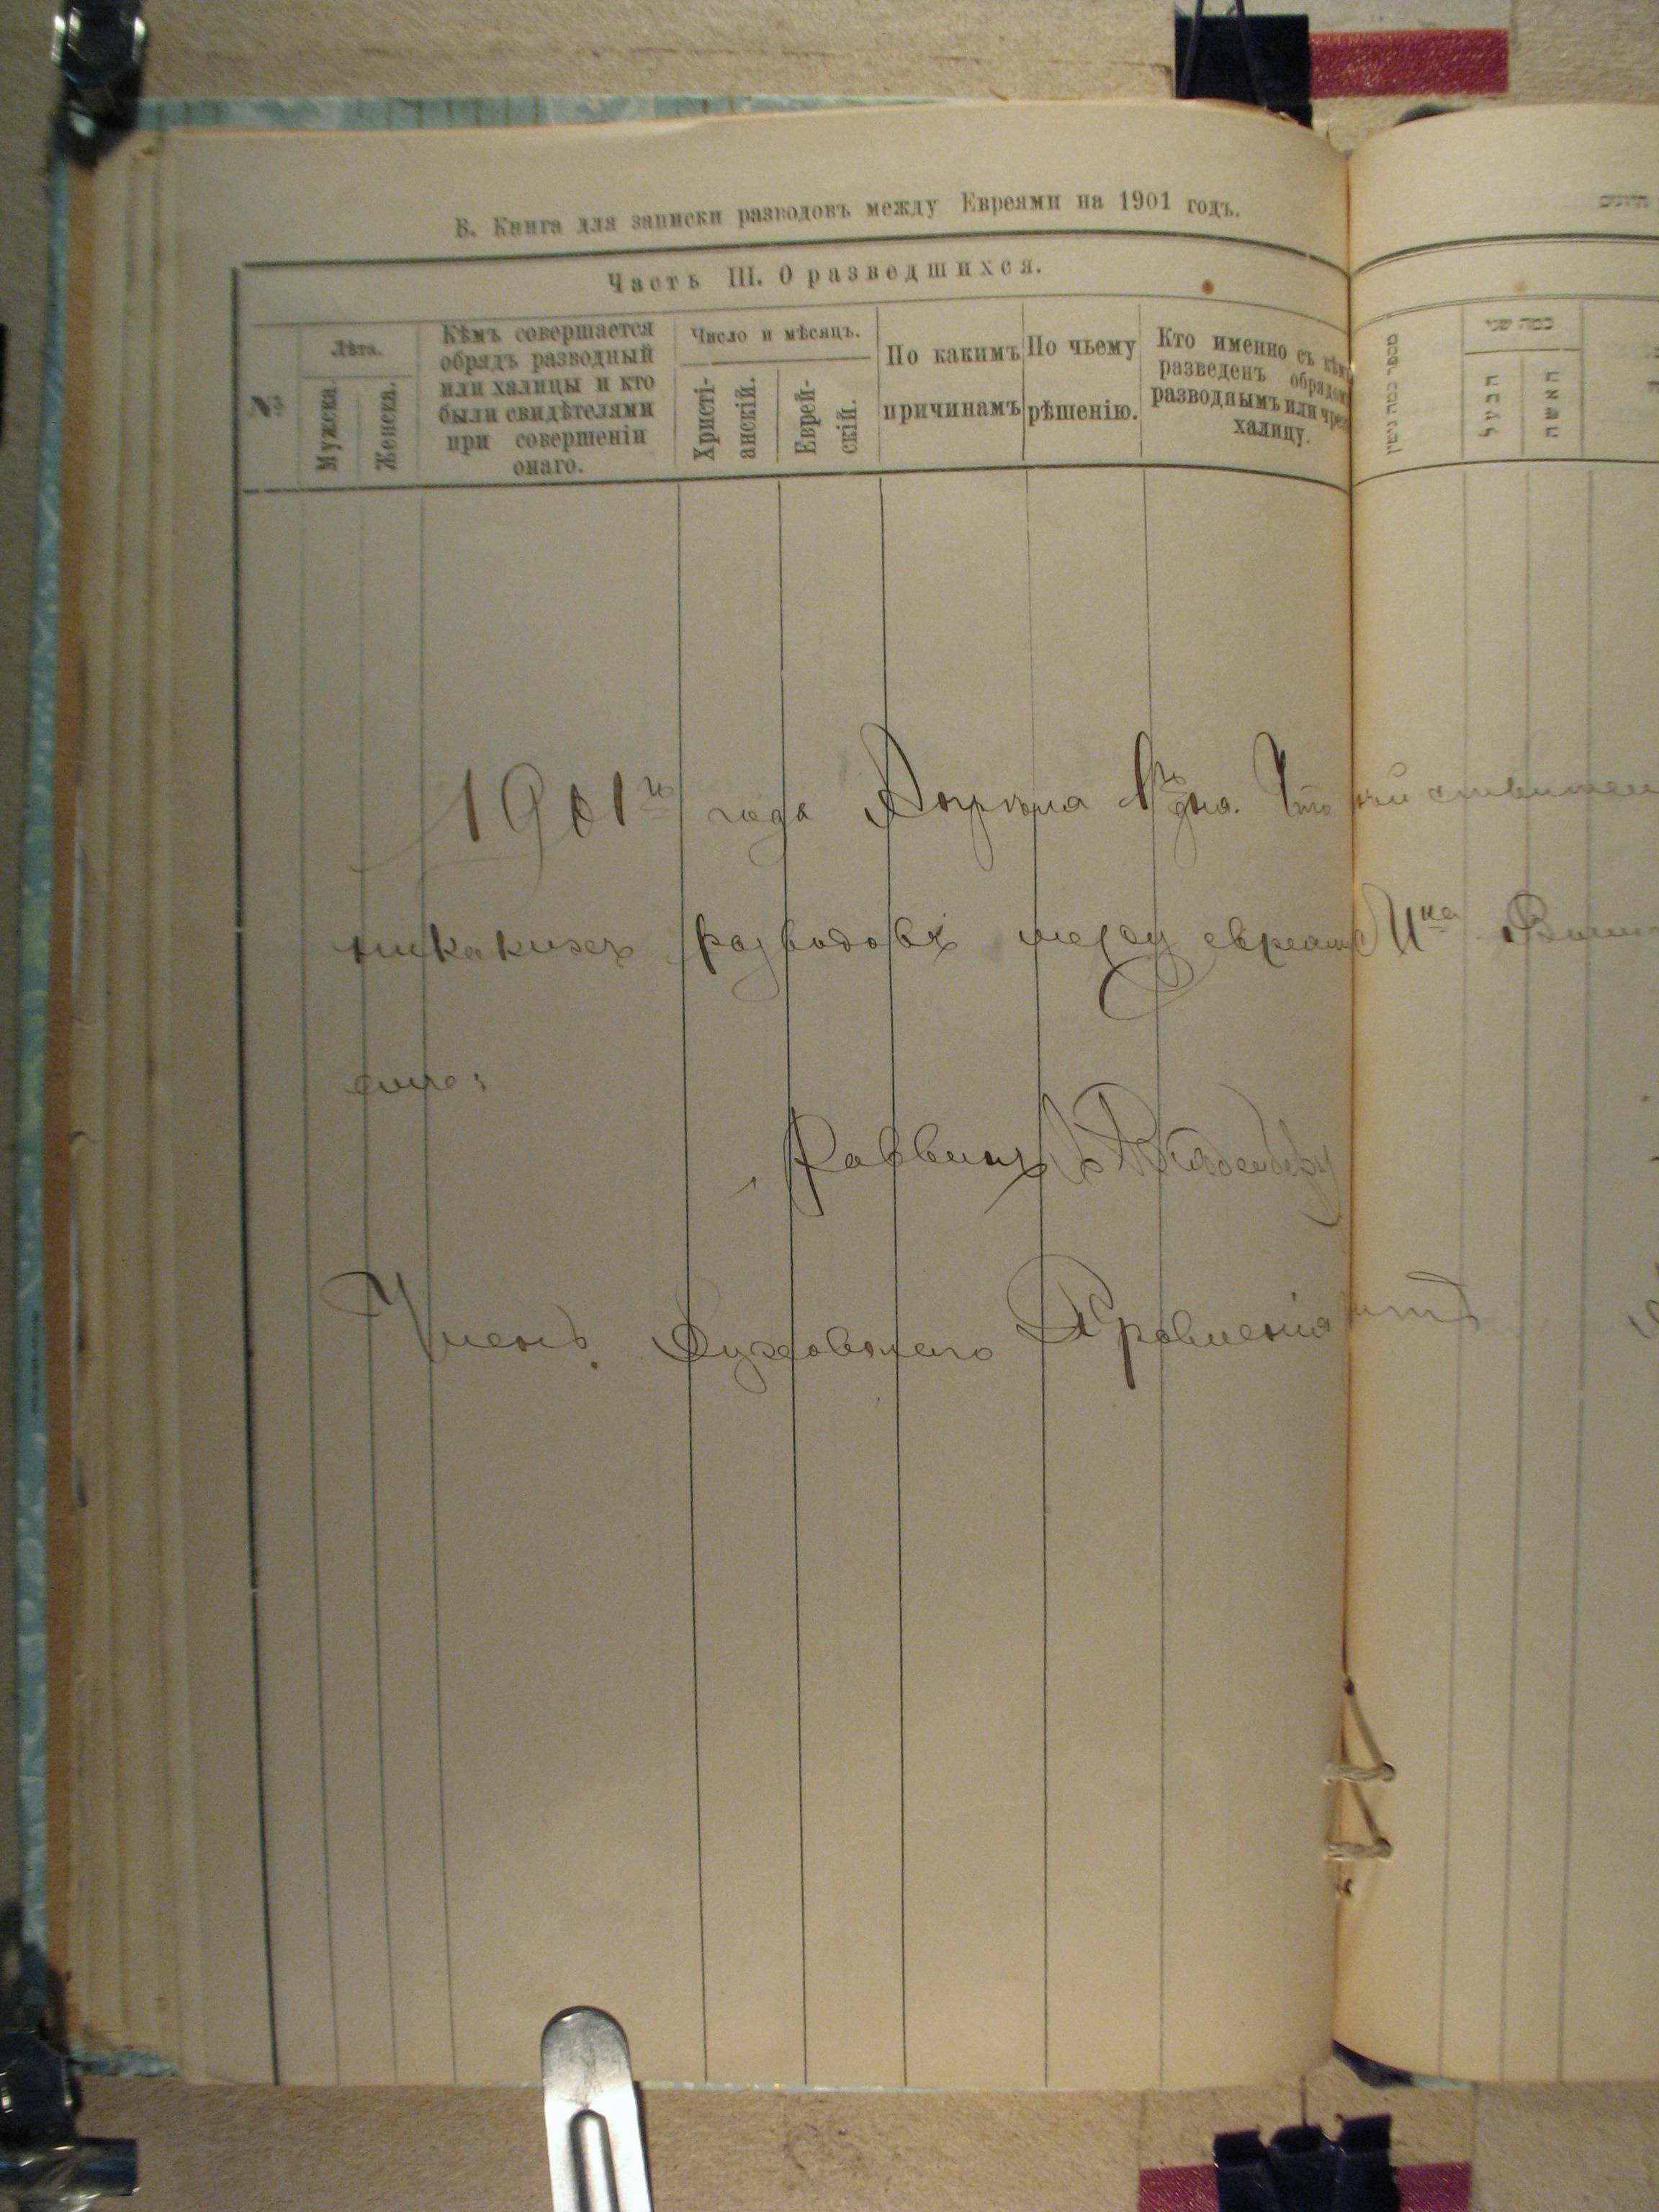 В. Книга для записки разводовъ между Евреями на 1901 годъ.
Часть III. О разведшихся.
№
Лѣта.
Мужска.
Женска.
Кѣмъ совершается
обрядъ разводный
или халицы и кто
были свидѣтелями
при совершеніи
онаго.
Число и мѣсяцъ.
Христі-
анскій.
Еврей-
скій.
По какимъ
причинамъ
По чьему
рѣшенію.
Кто именно съ кѣмъ
разведенъ обрядомъ
разводнымъ или чрезъ
халицу.
מספר כמה גיטין
כמה שני
הבעל
האשה
1901го года Апрѣля 1го дня. Что
никакихъ разводовъ между евреями
Раввинъ
Членъ Духовнаго Правленія